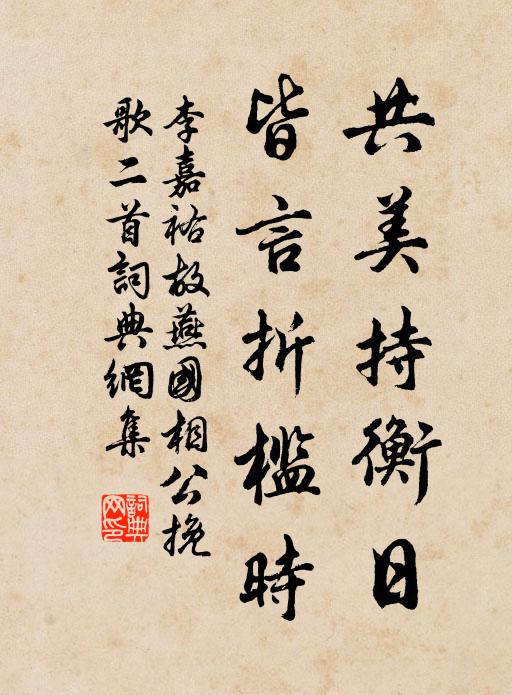 共美持衡日
皆言折檻時
李嘉祐故燕國相公挽
歌二首詞典網集
詞典
网印